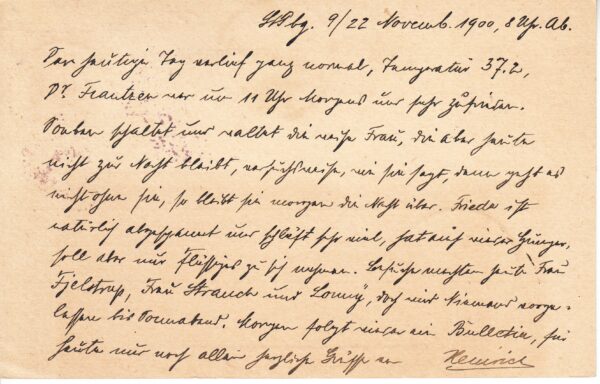 StPbg. 9/22 Novemb. 1900, 8 Uhr Ab.
Der heutige Tag verlief ganz normal, Temperatur 37.2,
Dr. Frantzen war um 11 Uhr Morgens und sehr zufrieden.
schaltet und waltet die weise Frau, die aber heute
nicht zur Nacht bleibt, versuchsweise, wie sie sagt, denn geht es
nicht ohne sie, so bleibt sie morgen die Nacht über. Frieda ist
natürlich abgespannt und schläft sehr viel, hat auch Hunger,
soll aber nur Flüssiges zu sich nehmen. Besuche machten heute Frau
Fjelstrup, Frau Strauch und Lonny, doch wird Niemand vorge-
lassen bis Sonnabend. Morgen folgt wieder ein Bulletin, für
heute nur noch allen herzliche Grüsse von Heinrich